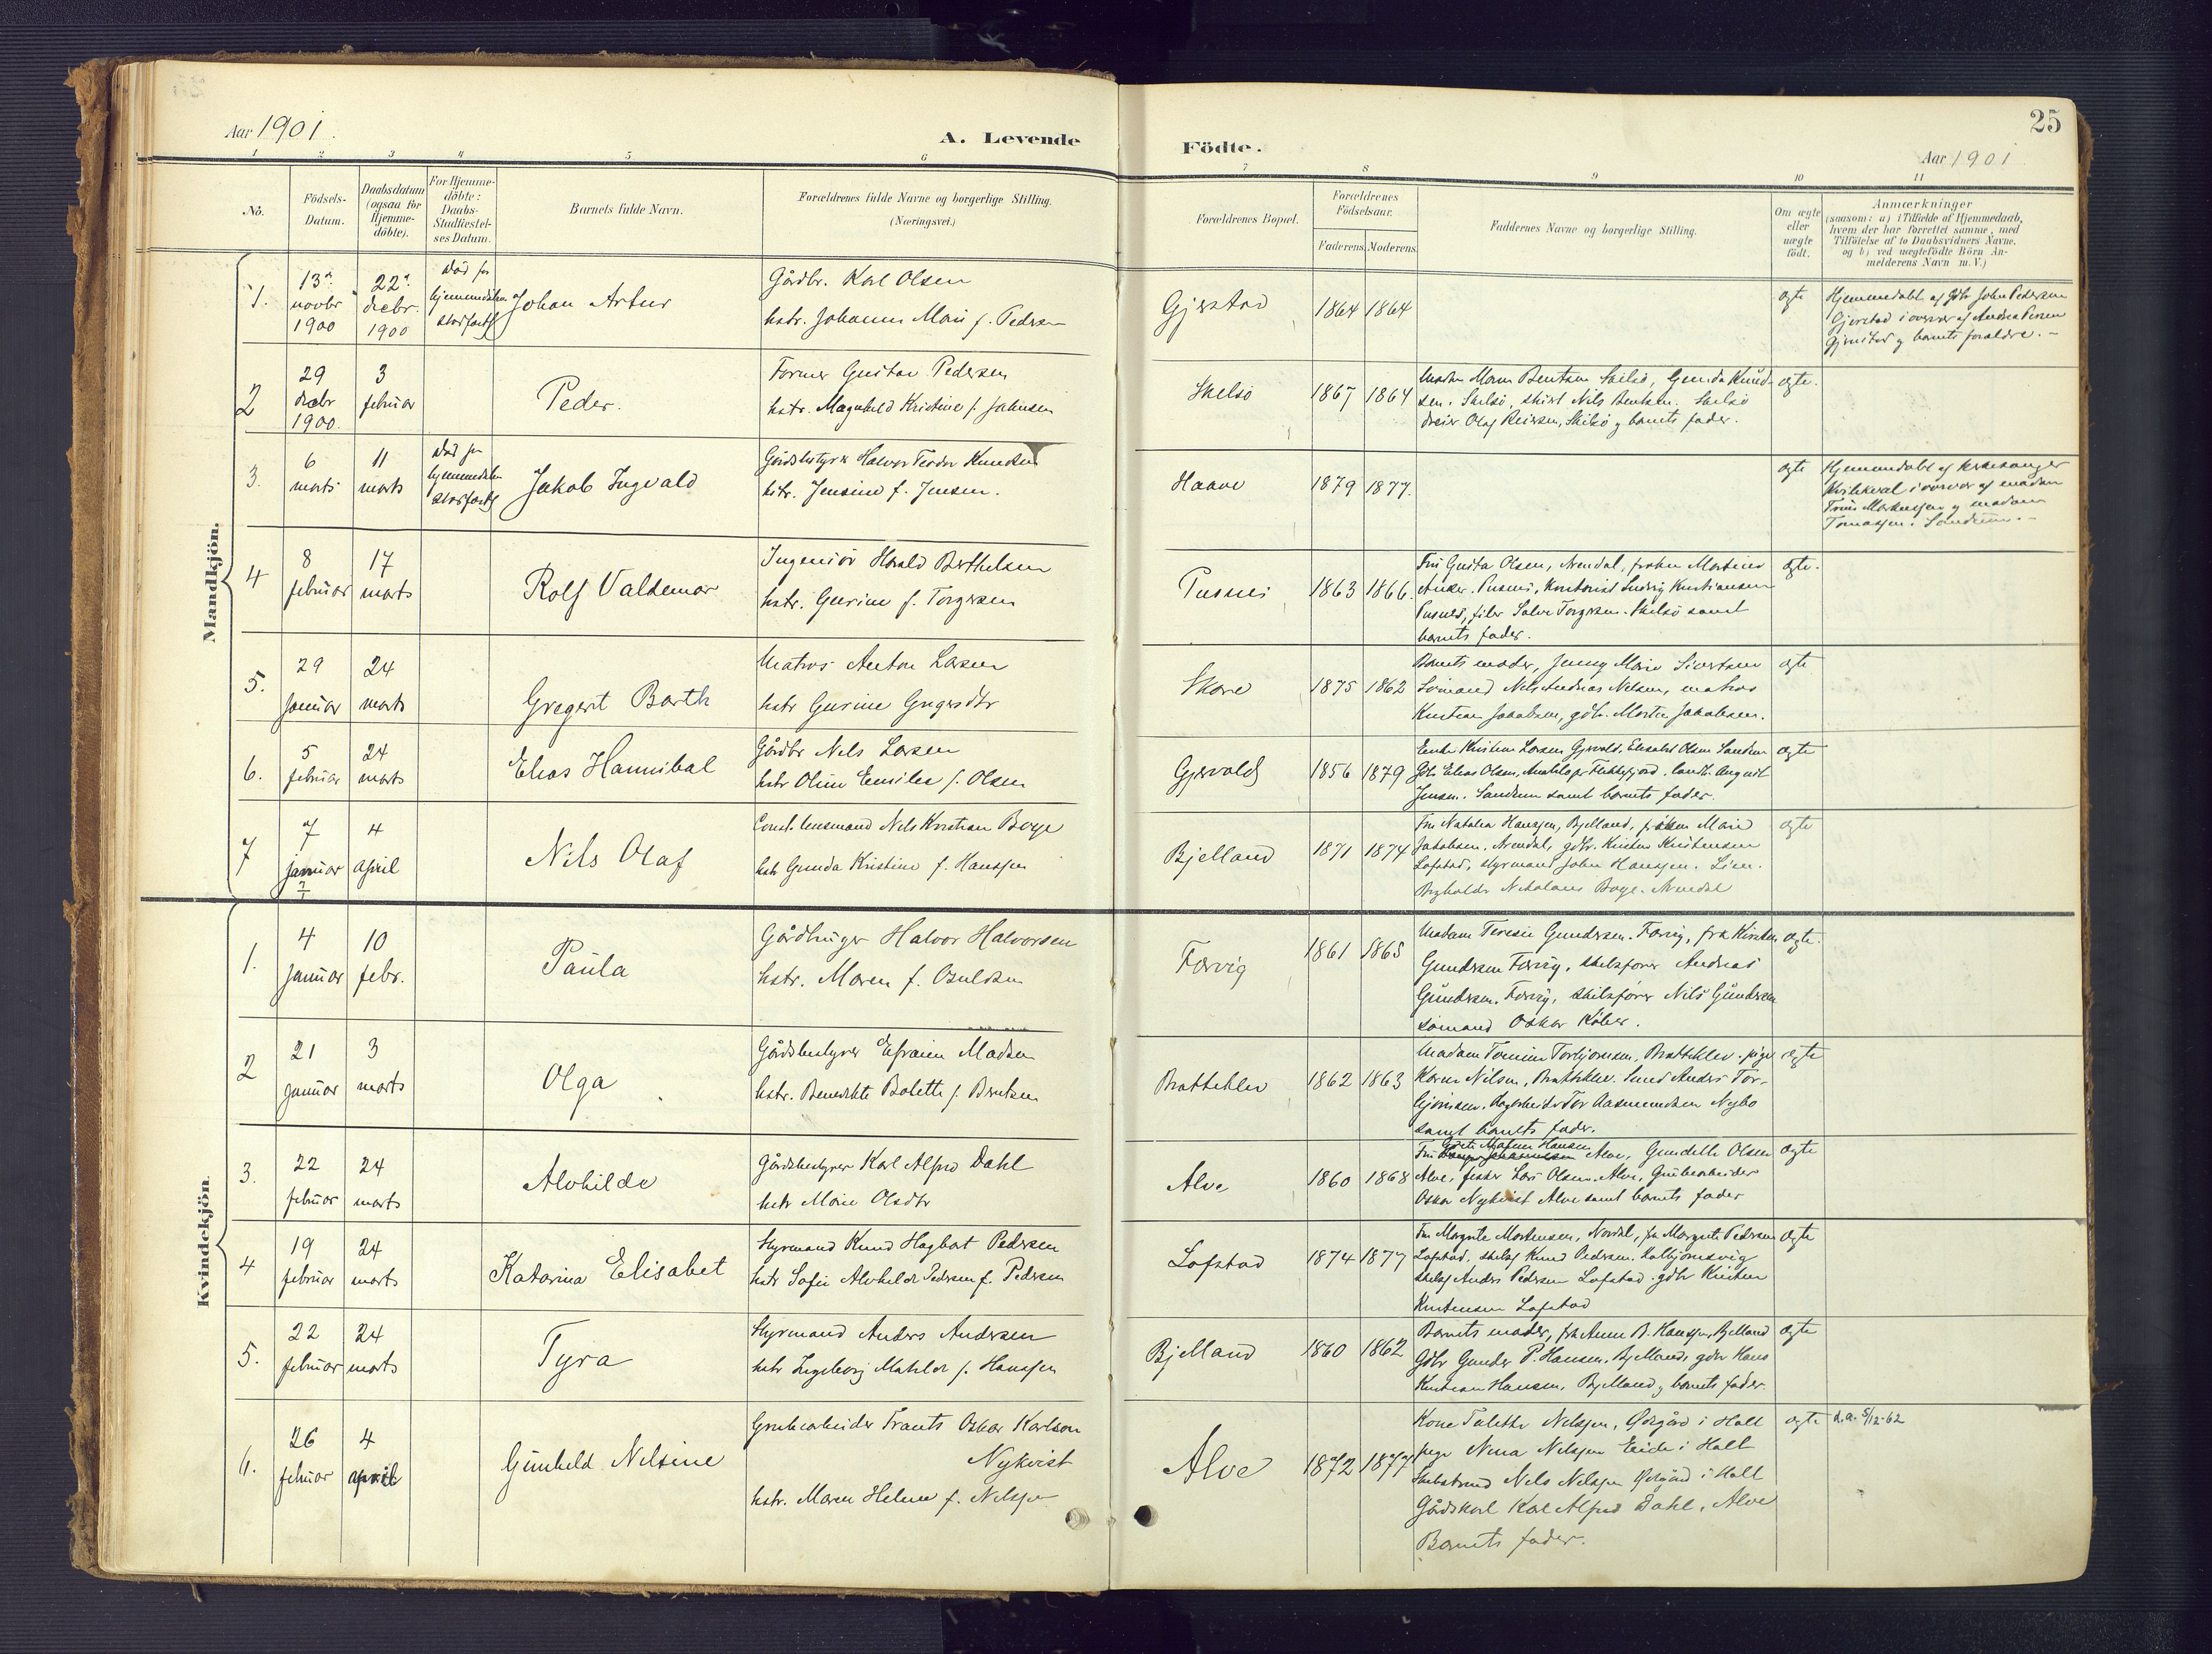 25
Aar 1901.
A. Levende
Födte.
Aar 1901
1 2 3 4 5 6 7 8 9 10 11
No.
Födsels-
Datum.
Daabsdatum
(ogsaa for
Hjemme-
döbte).
For Hjemme-
döbte:
Daabs-
Stadfæstel-
ses Datum.
Barnets fulde Navn.
Forældrenes fulde Navne og borgerlige Stilling.
(Næringsvei.)
Forældrenes Bopæl.
Forældrenes
Födselsaar.
Faderens. Moderens.
Faddernes Navne og borgerlige Stilling.
Om ægte
eller
uægte
födt.
Anmærkninger
(saasom: a) i Tilfælde af Hjemmedaab,
hvem der har forrettet samme, med
Tilföielse af to Daabsvidners Navne,
og b) ved uægtefödte Börn An-
melderens Navn m. V.)
Mandkjön.
1.
13de
novbr
1900
22de
decbr.
1900
död før
hjemmedåben
stadfæstet
Johan Artur
Gårdbr. Karl Olsen
hstr. Johanne Marie f. Pedersen
Gjerstad
1864 1864
ægte
Hjemmedøbt af gdbr John Pedersen
Gjerstad i overvær af Andrea
Gjerstad og barnets forældre. –
2
29
decbr
1900
3
februar
Peder.
Former Gustav Pedersen
hstr. Magnhild Kristine f. Jahnsen
Skilsø
1867 1864
Madam Maren Bentsen Skilsø, Gunda Knud-
sen. Skilsø, Nils Bentsen. Skilsø
dreier Olaf Reiersen, Skilsø og barnets fader.
ægte.
3.
6
marts
11
marts
død før
hjemmedåben
stadfæstet
Jakob Ingvald
Gårdsbestyrer Halvor Teodor Knudsen
hstr. Jensine f. Jensen.
Haave
1879 1877.
ægte
Hjemmedøbt af kirkesanger
i overvær af madam
og madam
Tomassen. Sandum. –
4
8
februar
17
marts
Rolf Valdemar
Ingeniør Harald Berthelsen
hstr. Gurine f. Torgersen
Pusnes
1863 1866.
Fru Gusta Olsen, Arendal, frøken Martine
Anker. Pusnes, kontorist Ludvig Kristiansen
Pusnes, filer Salve Torgersen. Skilsø samt
barnets fader.
ægte.
5.
29
januar
24
marts
Gregert Barth
Matros Anton Larsen
hstr Gurine Gregersdtr
Skare
1875 1862
Barnets moder, Jenny Marie Sivertsen
Sømand Nels Andreas Nelsen, matros
Kristian Jakobsen, gdbr. Martin Jakobsen.
ægte
6.
5
februar
24
marts
Elias Hannibal
Gårdbr Nels Larsen
hstr Oline Emilie f. Olsen
Gjervolds
1856 1879
Enke Kirstine Larsen Gjervold, Elisabet Olsen Sandum
Gdbr Elias Olsen, Flekkefjord, August
Jensen. Sandum samt barnets fader.
ægte
7
7
januar
4
april
Nils Olaf
Const. lensmand Nels Kristian Boye
hstr Gunda Kristine f. Hanssen
Bjelland
1871 1874
Fru Natalia Hanssen, Bjelland, frøken Marie
Jakobsen, Arendal, gdbr. Kristen Kristensen
Lofstad, styrmand John Hanssen. Lien.
Nikolaus Boye. Arendal
ægte
Kvindekjön.
1.
4
januar
10
febr.
Paula
Gårdbruger Halvor Halvorsen
hstr. Maren f. Osulsen
Færvig
1861 1865
Madam Teresie Gundersen. Færvig, frk Kirsten
Gundersen Færvig, skibsfører Andreas
Gundersen. Færvig, skibsfører Nils Gundersen
sømand Oskar Køber.
ægte.
2
21
januar
3
marts
Olga
Gårdsbestyrer Efraim Madsen
hstr. Benedikte Bolette f. Berntsen
Bratteklev
1862 1863
Madam Tomine Torbjørnsen, Bratteklev. pige
Karen Nilsen, Bratteklev. Smed Anders Tor-
bjørnsen. Tor Aasmundsen Nybo
samt barnets fader.
ægte
3.
22
februar
24
marts
Alvhilde
Gårdsbestyrer Karl Alfred Dahl
hstr Marie Olsdtr
Alve
1860 1868
Fru Hansen Alve, Gundelle Olsen
Alve, fisker Lars Olsen. Alve, Grubearbeider
Oskar Nykvist Alve samt barnets fader
ægte
4
19
februar
24
marts
Katarina Elisabet
Styrmand Knud Hagbart Pedersen
hstr Sofie Alvhilde Pedersen f. Pedersen
Lofstad
1874 1877
Fru Margrete Mortensen, Nardal, fru Margrete Pedersen
Lofstad. skibsf Knud Pedersen. Kolbjørnsvig
skibsf Anders Pedersen Lofstad. gdbr Kristen
Kristensen Lofstad
ægte
5.
22
februar
24
marts
Tyra
Styrmand Anders Andersen
hstr Ingeborg Matilde f. Hanssen
Bjelland
1860 1862
Barnets moder, frk Anne B. Hanssen, Bjelland
Gdbr Gunder P. Hansen. Bjelland, gdbr Hans
Kristian Hansen, Bjelland og barnets fader.
ægte
6.
26
februar
4
april
Gunhild Nelsine
Grubearbeider Frants Oskar Karlson
Nykvist
hstr. Maren Helene f. Nelssen
Alve
1872 1877
Kone Talette Nelssen, Østgård i Holt
pige Nina Nelssen Eide i Holt
Nels Nelssen Østgård i Holt
Gårdskarl Karl Alfred Dahl, Alve
Barnets fader.
ægte
d.a. 5/12-62